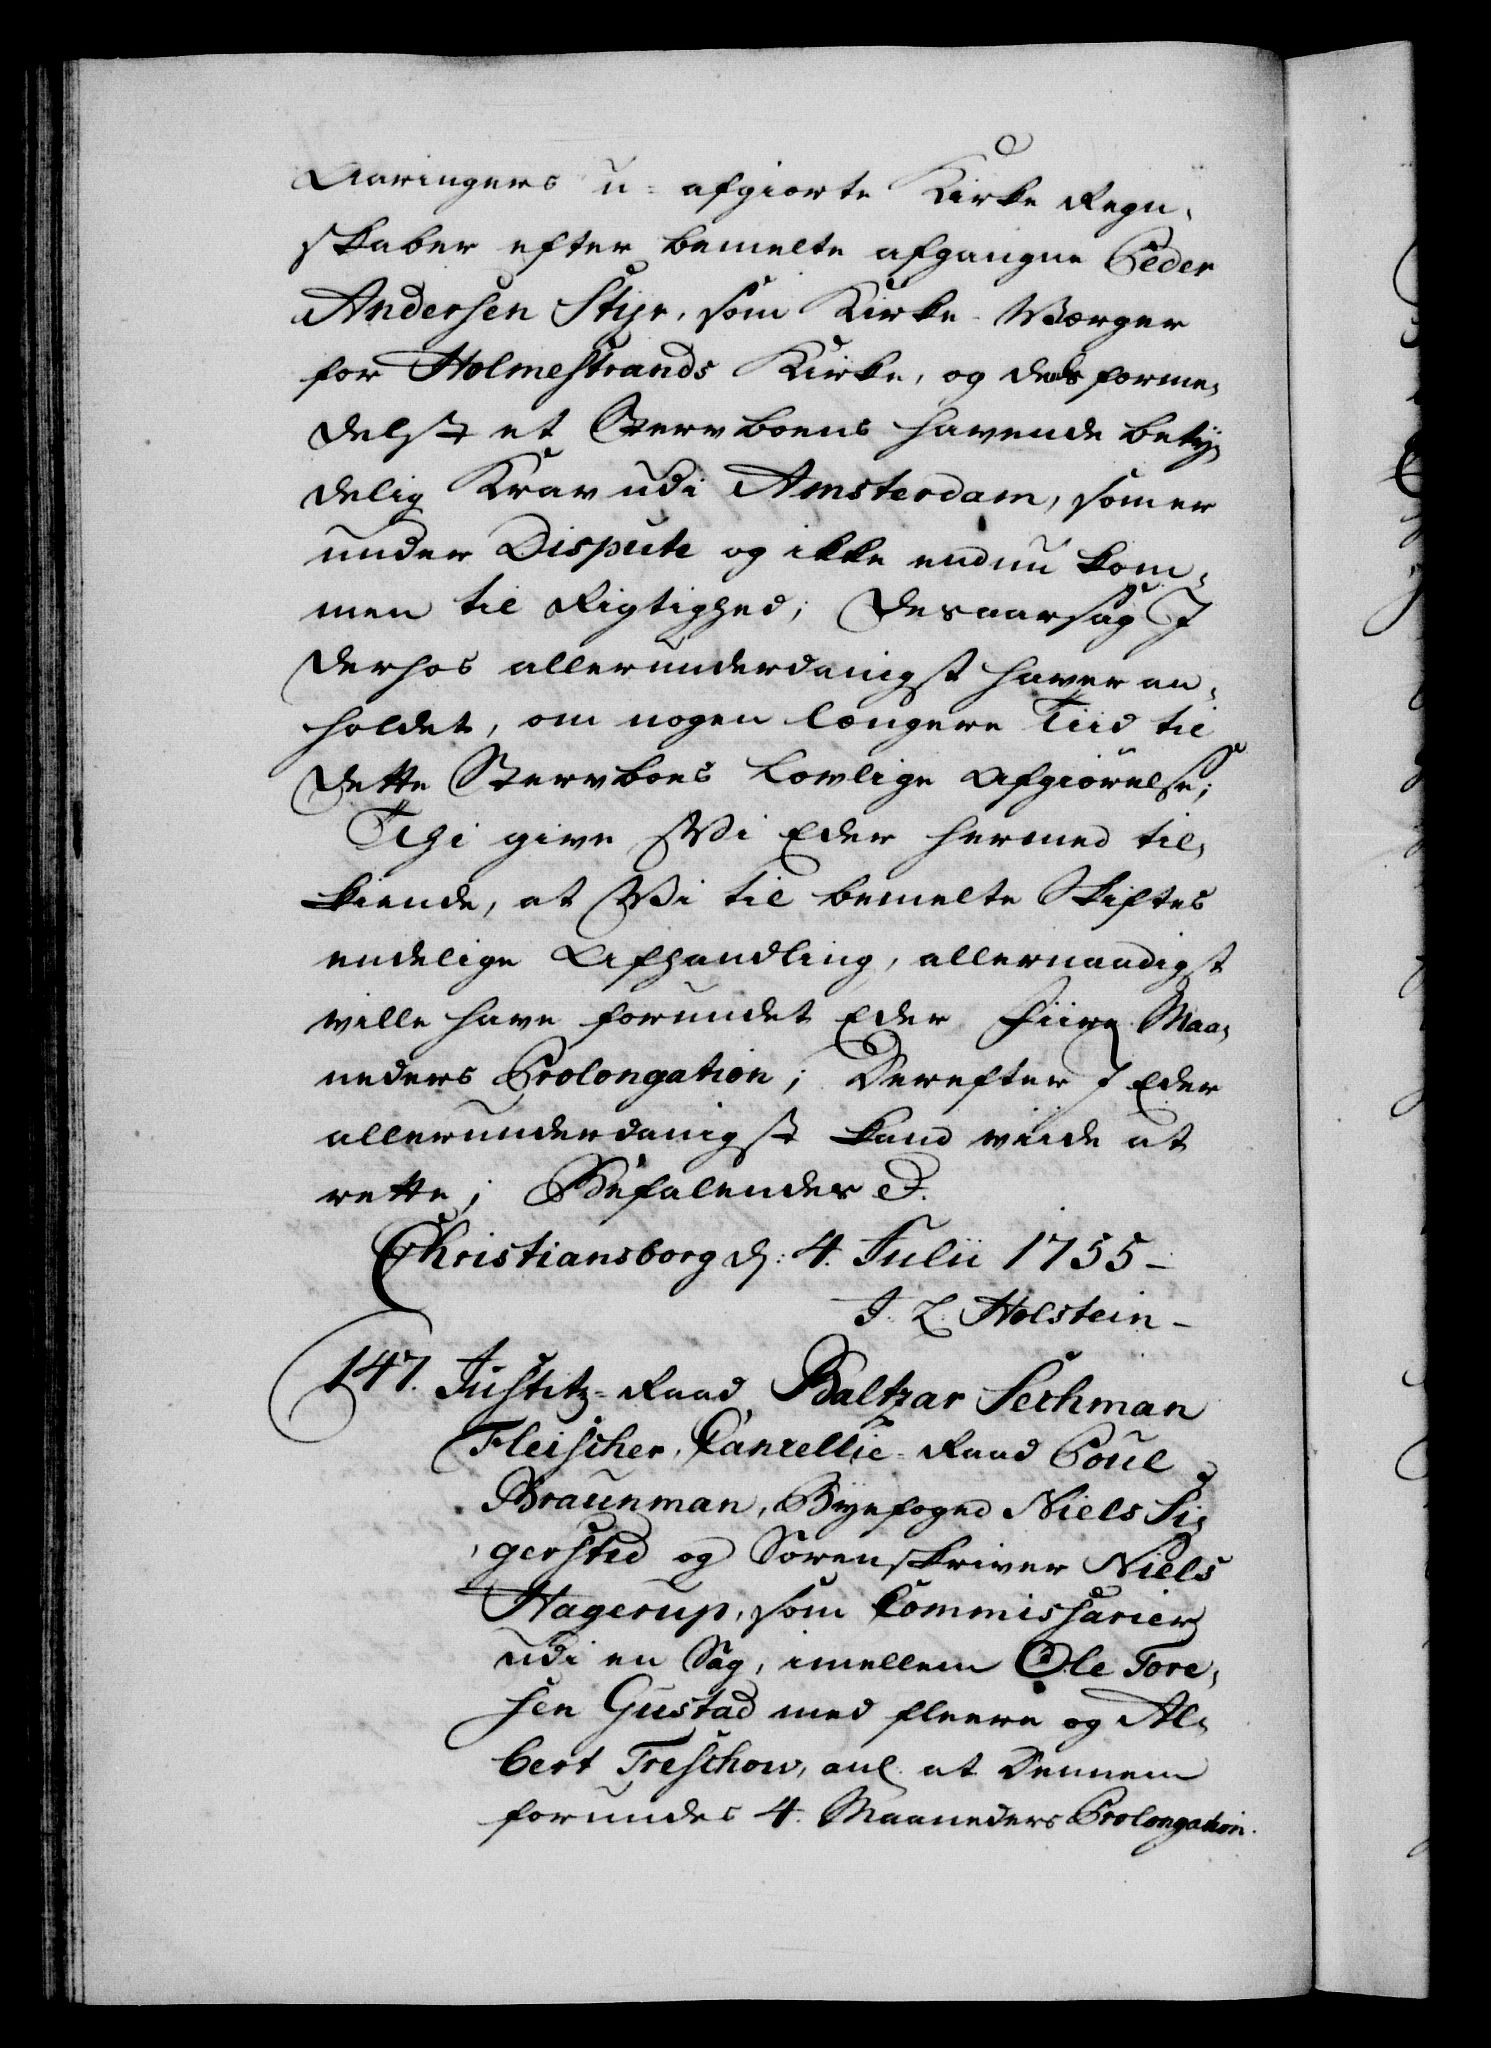 Aaringers u-afgiorte Kirke Regn-
skaber efter bemelte afgangne Peder
Andersen Styr, som Kirke-Værger
for Holmestrands Kirke, og deels forme-
delst et Sterboens havende bety-
delig Krav udi Amsterdam, som er
under Dispute og ikke endnu kom-
men til Rigtighed; Desaarsag I
derhos allerunderdanigst haver an-
holdet, om nogen længere Tiid til
dette Stervboes lovlige Afgiørelse;
Thi give Wi Eder hermed til-
kiende, at Wi til bemelte Skiftes
endelige Afhandling, allernaadigst
ville have forundet Eder Fiire Maa-
neders Prolongation; Derefter I Eder
allerunderdanigst kand viide at
rette; Befalendes &.
Christiansborg d: 4. Julii 1755-
J. L. Holstein-
147. Justitz-Raad Baltzar Sechman
Fleischer, Cancellie-Raad Poul
Braunman, Byefoged Niels Si-
gersted og Sorenskriver Niels
Hagerup, som Commissarier
udi en Sag, imellem Ole Tore-
sen Gustad med fleere og Al-
bert Treschow, anl. at Dennem
forundes 4. Maaneders Prolongation.